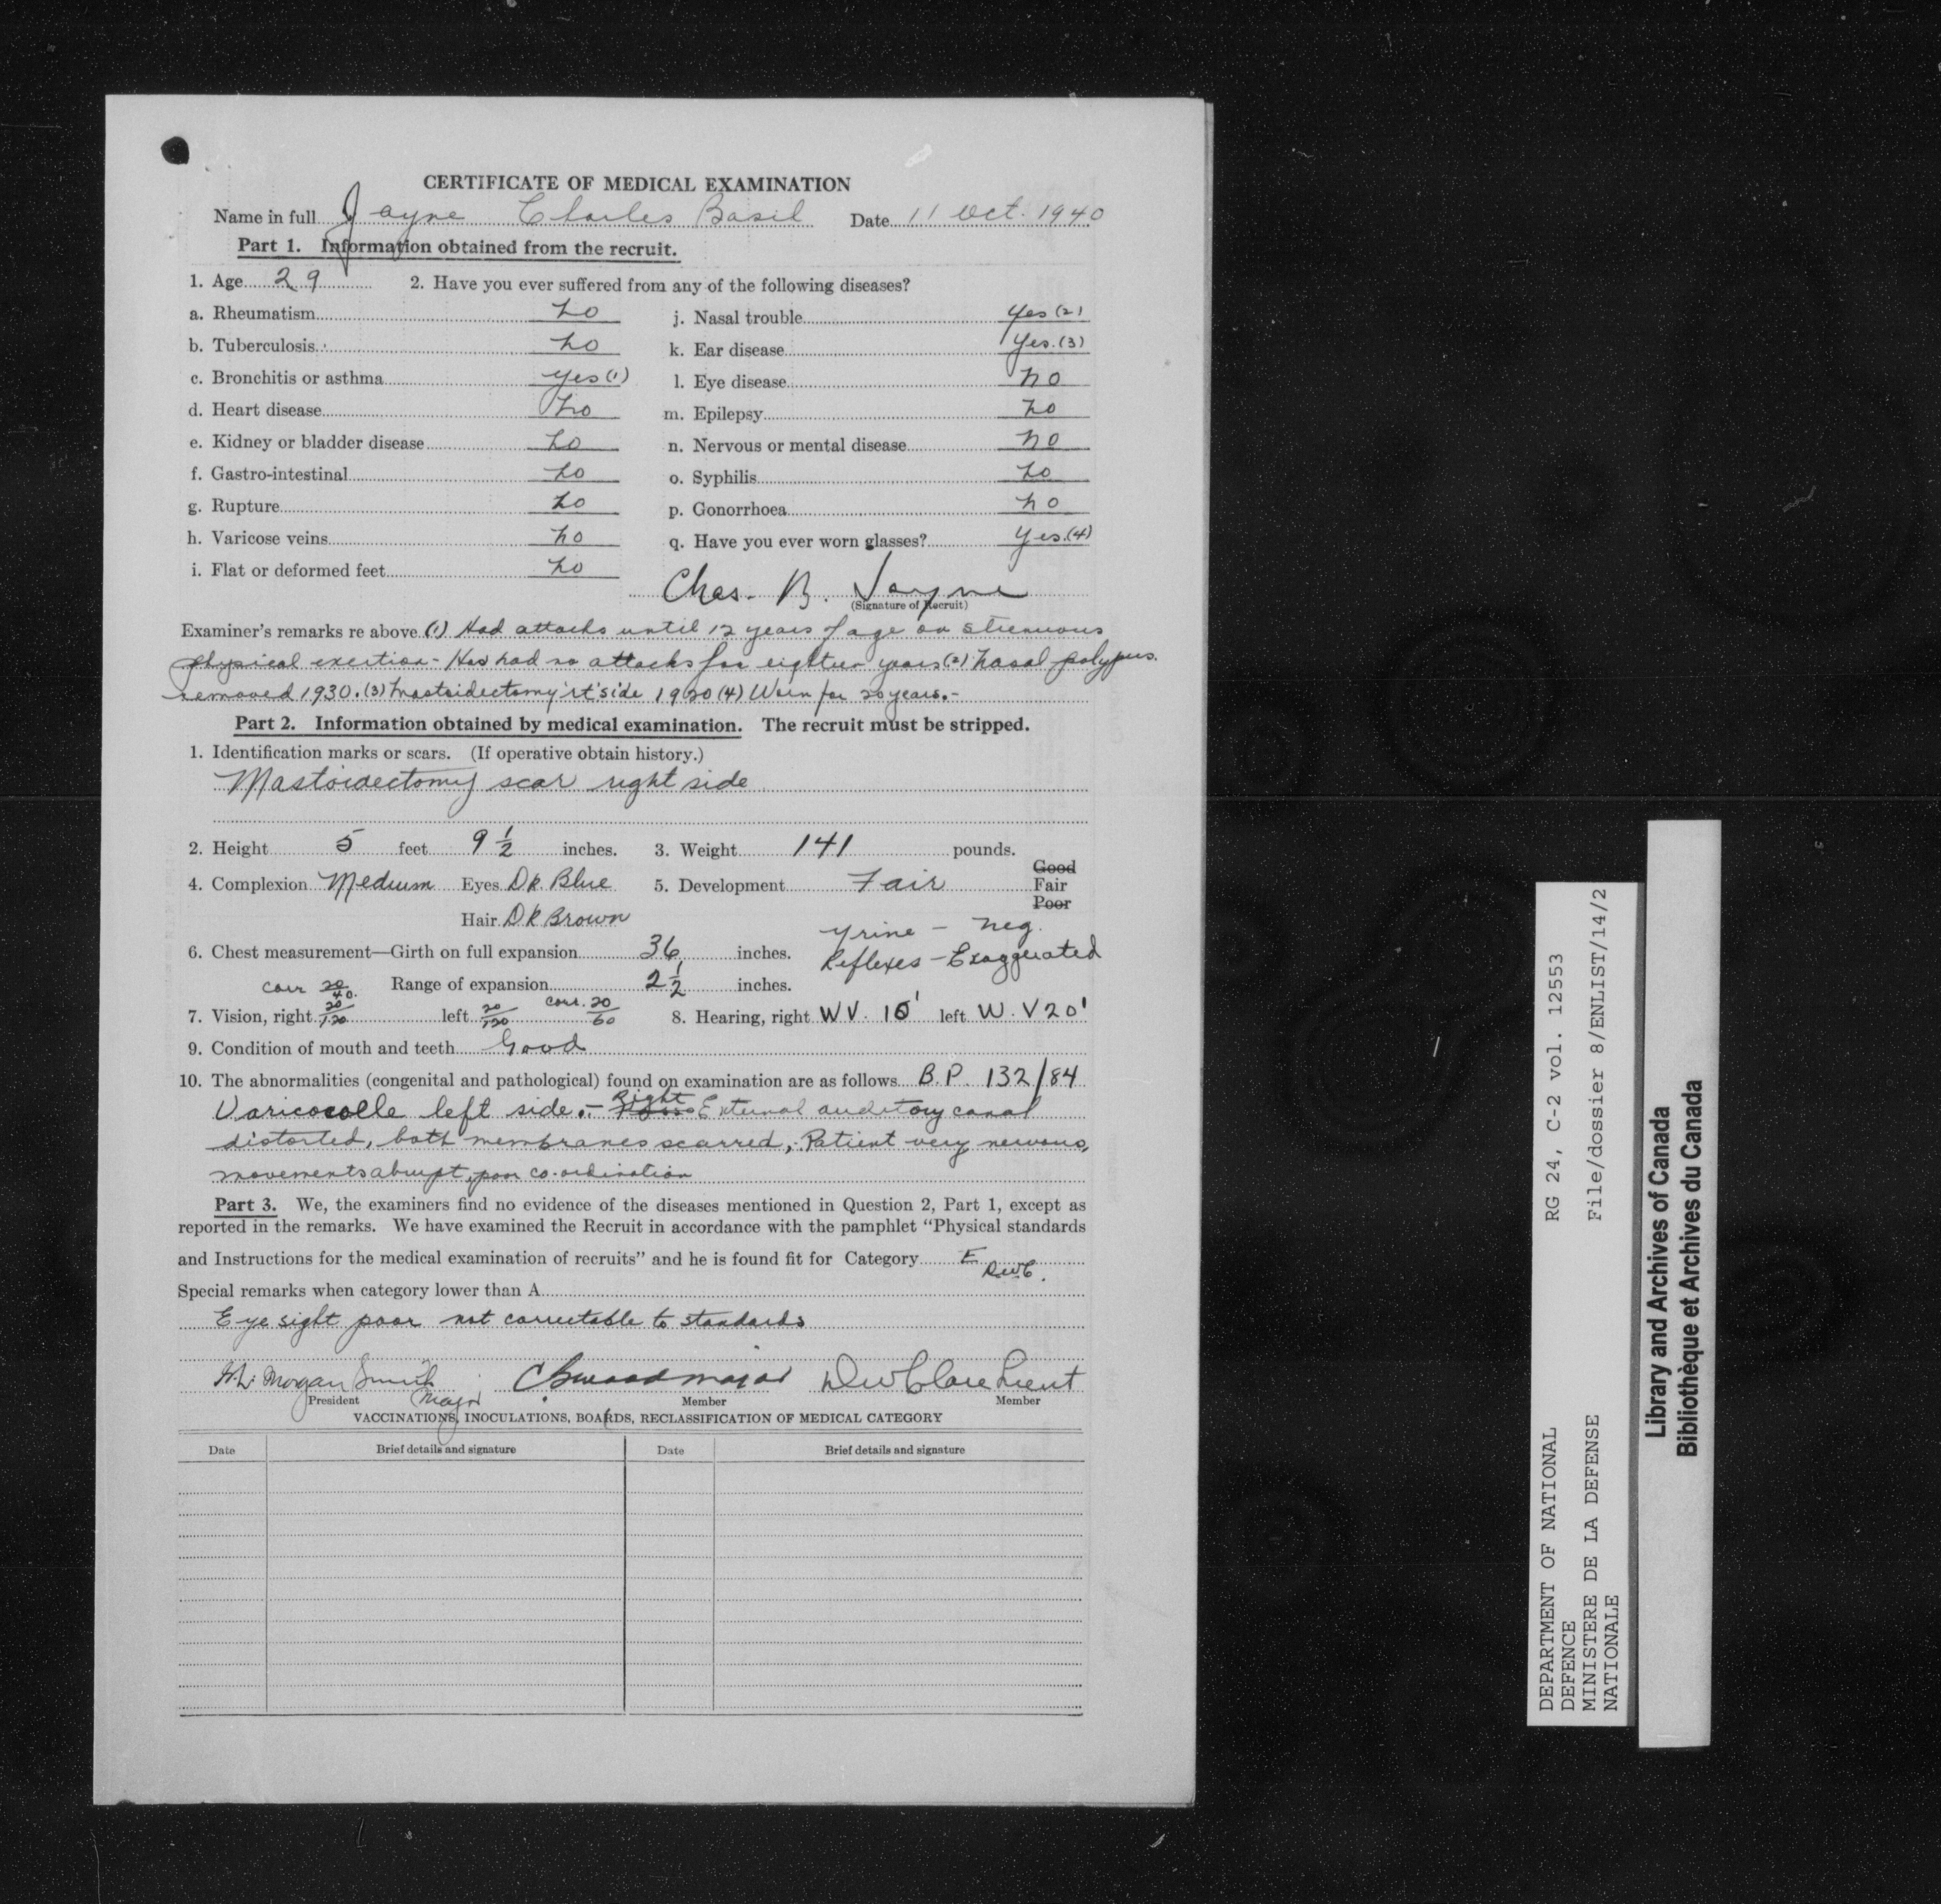 CERTIFICATE OF MEDICAL EXAMINATION
Name in full Jayne Charles Basil Date 11 Oct. 1940
Part 1. Information obtained from the recruit.
1. Age 29 2. Have you ever suffered from any of the following diseases?
a. Rheumatism no j. Nasal trouble yes (2)
b. Tuberculosis no k. Ear disease yes. (3)
c. Bronchitis or asthma yes (1) l. Eye disease no
d. Heart disease no m. Epilepsy no
e. Kidney or bladder disease no n. Nervous or mental disease no
f. Gastro-intestinal no o. Syphilis no
g. Rupture no p. Gonorrhoea no
h. Varicose veins no q. Have you ever worn glasses? yes. (4)
i. Flat or deformed feet no
Chas. B. Jayne
(Signature of Recruit)
Examiner's remarks re above (1) Had attacks until 12 years of age on strenuous
physical exertion - Has had no attacks for eighteen years (2) nasal polypus
removed 1930. (3) mastoidectomy rt side 1920 (4) Worn for 20 years. -
Part 2. Information obtained by medical examination. The recruit must be stripped.
1. Identification marks or scars. (If operative obtain history.)
Mastoidectomy scar right side
2. Height 5 feet 9 1/2 inches. 3. Weight 141 pounds.
Good
4. Complexion Medium Eyes Dk. Blue 5. Development Fair Fair
Poor
Hair Dk Brown
Urine - neg.
6. Chest measurement—Girth on full expansion 36 inches. Reflexes - Exaggerated
corr 20/40. Range of expansion 2 1/2 inches.
7. Vision, right 20/120 left 20/120 corr. 20/60 8. Hearing, right W V. 10' left W. V 20'
9. Condition of mouth and teeth Good
10. The abnormalities (congenital and pathological) found on examination are as follows B.P. 132/84
Varicocolle left side. - Right External auditory canal
distorted, both membranes scarred, Patient very nervous,
movements abrupt, poor co-ordination
Part 3. We, the examiners find no evidence of the diseases mentioned in Question 2, Part 1, except as
reported in the remarks. We have examined the Recruit in accordance with the pamphlet "Physical standards
and Instructions for the medical examination of recruits" and he is found fit for Category E
DWC.
Special remarks when category lower than A
Eye sight poor not correctable to standards
Morgan Smith Major C B Wood Major DW Clare Lieut
President Member Member
VACCINATIONS, INOCULATIONS, BOARDS, RECLASSIFICATION OF MEDICAL CATEGORY
Date Brief details and signature Date Brief details and signature
DEPARTMENT OF NATIONAL
DEFENCE
MINISTERE DE LA DEFENSE
NATIONALE
RG 24, C-2 vol. 12553
File/dossier 8/ENLIST/14/2
Library and Archives of Canada
Bibliothèque et Archives du Canada